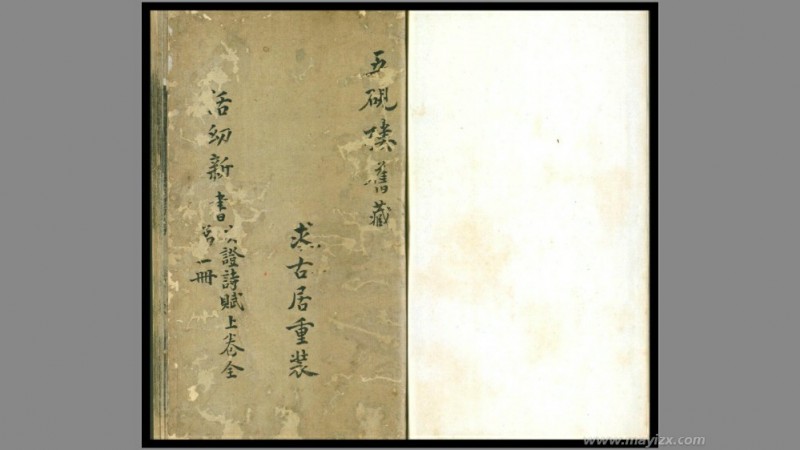 五硯樓舊藏
求古居重裝
活幼新書决證詩賦上卷全
一冊
www.mayizx.com